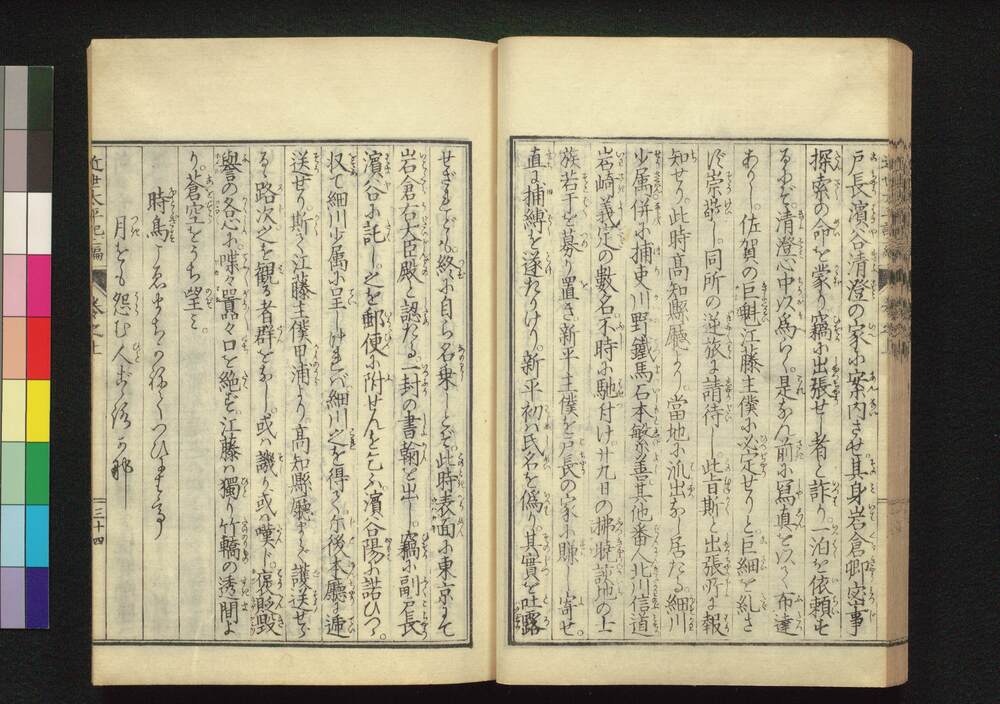 戸長濱谷清澄の家に案内させ其身岩倉卿密事
探索の命を蒙り竊に出張せし者と詐り一泊を依頼す
るにぞ清澄心中以爲らく是なん前に寫真を以て布達
ありし佐賀の巨魁江藤主僕に必定せりと巨細を糺さ
ず崇敬し同所の逆旅に請待し此旨斯と出張所に報
知せり此時高知縣廳より當地に派出なし居たる細川
少属併に捕吏川野鐵馬石本敏善其他番人北川信道
岩崎義定の數名不時に馳付け廿九日の拂暁該地の士
族若干を募り置き新平主僕を戸長の家に賺し寄せ
直に捕縛を遂たりけり新平初は氏名を偽り其實を吐露
せざれども終に自ら名乗しとぞ此時表面に東京にて
岩倉右大臣殿と認たる一封の書翰を出し竊に副戸長
濱谷に託し之を郵便に附せんを乞ふ濱谷陽に諾ひつゝ
収て細川少属に呈しければ細川之を得て尓後本廳に逓
送せり斯て江藤主僕甲浦より高知縣廳まで護送せら
るゝ路次之を観る者群をなし或は譏り或は嘆ず褒貶毀
譽の各心に喋々囂々口を絶ず江藤は獨り竹轎の透間よ
り蒼空をうち望み
時鳥こゑまちかねてつひにする
月をも怨む人ごゝろかな
近世太平記二編
巻之十
三十四